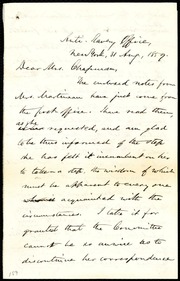 Anti-Slavery Office,
New York, 31 Aug, 1859.
Dear Mrs. Chapman,
The enclosed notes from
Mrs Martineau have just come from
the post office. I have read them,
as she
requested, and am glad
to be thus informed of the step
she has felt it incumbent on her
to take—a step, the wisdom of which
must be apparent to every one
acquainted with the
circumstances. I take it for
granted that the Committee
cannot be so unwise as to
discontinue her correspondence